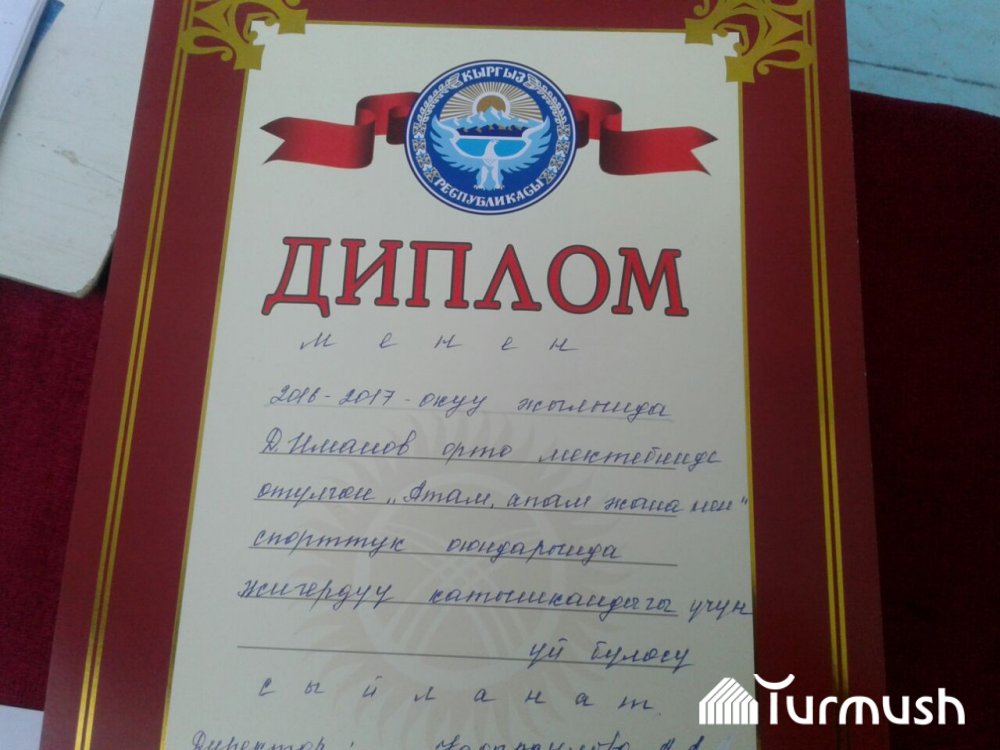 КЫРГЫЗ
РЕСПУБЛИКАСЫ
ДИПЛОМ
менен
2016-2017-окуу жылында
Д.Иманов орто мектебинде
отулгон „Атам, апам жана мен"
спорттук оюндарында
жигердуу катышкандыгы учун
уй булосу
сыйланат.
Директор:
Turmush